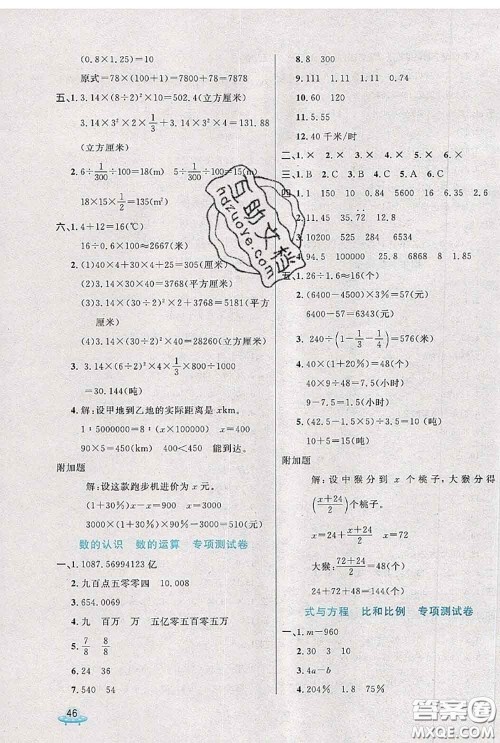 (0.8×1.25)=10
原式=78×(100+1)=7800+78=7878
五、1. 3.14×(8÷2)²×10=502.4(立方厘米)
3.14×3²×2×1/3+3.14×3²×4=131.88
(立方厘米)
2. 6÷1/300÷100=18(m) 5÷1/300÷100=15(m)
18×15×1/2=135(m²)
六、1. 4+12=16(℃)
16÷0.6×100≈2667(米)
2. (1)40×4+30×4+25=305(厘米)
(2)3.14×(30÷2)²×2+3768=5181(平方
厘米)
(4)3.14×(30÷2)²×40=28260(立方厘米)
3. 3.14×(6÷2)²×4×1/3+3.14×(6÷2)²
=30.144(吨)
4. 解:设甲地到乙地的实际距离是xkm.
1∶5000000=8∶(x×100000) x=400
90×5=450(km) 400<450 能到达。
附加题
解:设这款跑步机进价为 x 元。
(1+30%)x-x=900 x=3000
3000×(1+30%)×90%-3000=510(元)
数的认识 数的运算 专项测试卷
一、1. 1087.56994123 亿
2. 九百点五零零四 10.008
3. 654.0069
4. 九 百万 万 五亿零五百零五万
5. 7/8 8/8
6. 24 36
7. 540 54
46
8. 8 300
9. 111 1.11 0.11 0.74
10. 60 120
11. 5.55
12. 40 千米/时
二、1. × 2. × 3. × 4. × 5. × 6. ×
三、1. B 2. B 3. A 4. C 5. A 6. C
四、1. 1 150 10 0.84 5600 16 2.6
2. 11.45 35.72 12.8
3. 10200 0.25 284
4. 94.5 100000 25.8 20
五、1. 26÷1.6≈16(个)
2. (6400-4500)×3%=57(元)
6400-57=6343(元)
3. 240÷(1-1/3-1/4)=576(米)
4. 40×(1+20%)=48(个)
40×9÷48=7.5(小时)
9-7.5=1.5(小时)
5. (42.5-1.5×5)÷3.5=10(吨)
10+5=15(吨)
附加题
解:设中猴分到 x 个桃子,大猴分得
(x+24/2)个桃子。
x+x+24/2=24×2 x=24
大猴:72+24/2=48(个)
24+72+48=144(个)
式与方程 比和比例 专项测试卷
一、1. m-960
2. 30 3 10
3. 4a-b
4. 204% 1.8 75%
互助文档
hdzuoye.com
答案圈
MXQE.COM